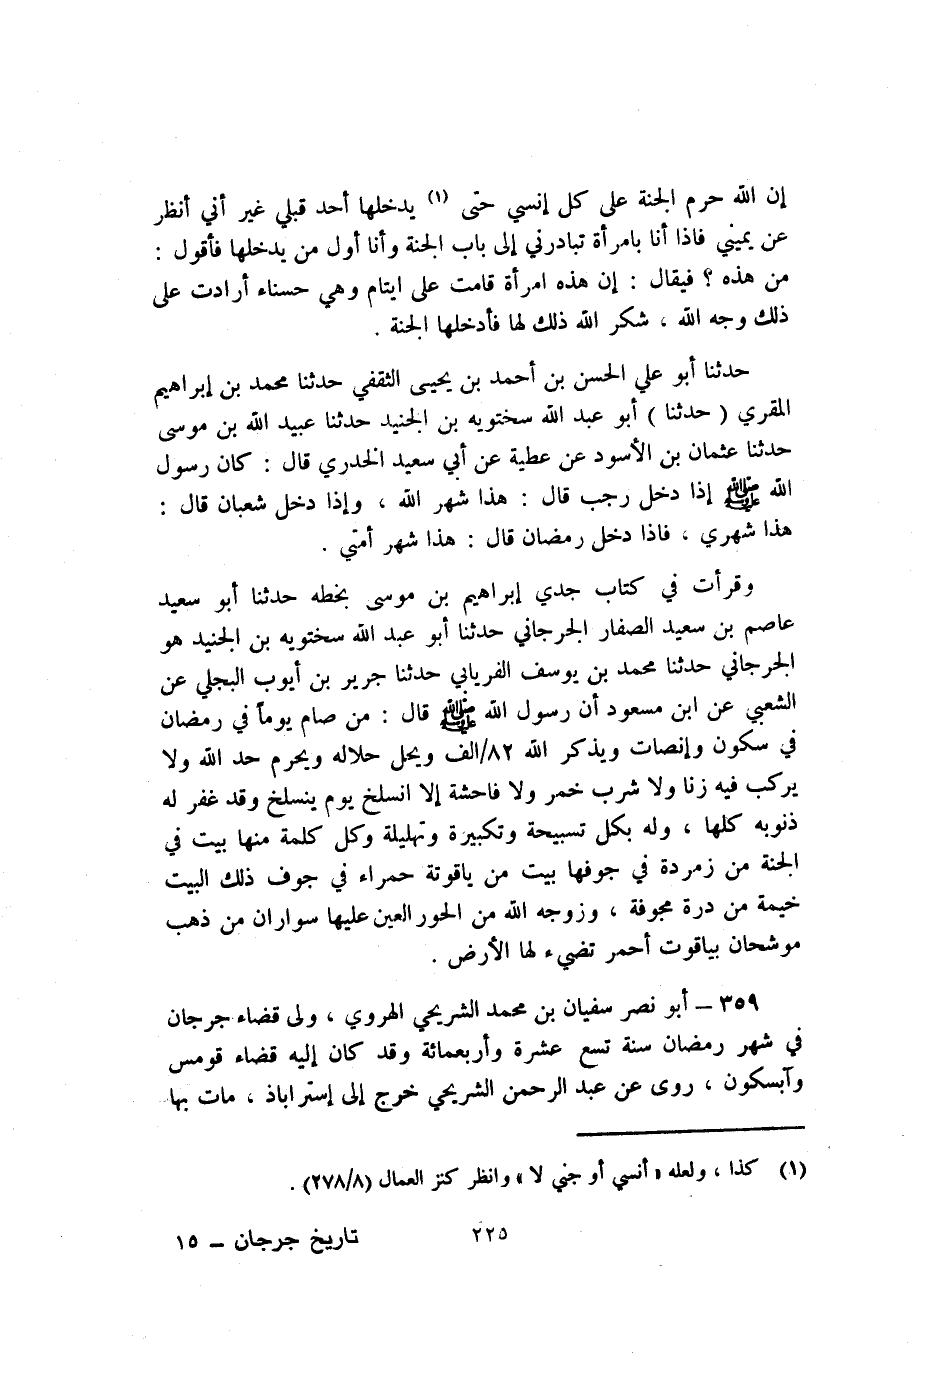 إن الله حرم الجنة على كل إنسي حتى (١) يدخلها أحد قبلي غير أني أنظر
عن يميني فاذا أنا بامرأة تبادرني إلى باب الجنة وأنا أول من يدخلها فأقول :
من هذه ؟ فيقال : إن هذه امرأة قامت على ايتام وهي حسناء أرادت على
ذلك وجه الله ، شكر الله ذلك لها فأدخلها الجنة .
حدثنا أبو علي الحسن بن أحمد بن يحيى الثقفي حدثنا محمد بن إبراهيم
المقري ( حدثنا ) أبو عبد الله سختويه بن الجنيد حدثنا عبيد الله بن موسى
حدثنا عثمان بن الأسود عن عطية عن أبي سعيد الخدري قال : كان رسول
الله ﷺ إذا دخل رجب قال : هذا شهر الله ، وإذا دخل شعبان قال :
هذا شهري ، فاذا دخل رمضان قال : هذا شهر أمتي .
وقرأت في كتاب جدي إبراهيم بن موسى بخطه حدثنا أبو سعيد
عاصم بن سعيد الصفار الجرجاني حدثنا أبو عبد الله سختويه بن الجنيد هو
الجرجاني حدثنا محمد بن يوسف الفريابي حدثنا جرير بن أيوب البجلي عن
الشعبي عن ابن مسعود أن رسول الله ﷺ قال : من صام يوماً في رمضان
في سكون وإنصات ويذكر الله ٨٢/الف ويحل حلاله ويحرم حد الله ولا
يركب فيه زنا ولا شرب خمر ولا فاحشة إلا انسلخ يوم ينسلخ وقد غفر له
ذنوبه كلها ، وله بكل تسبيحة وتكبيرة وتهليلة وكل كلمة منها بيت في
الجنة من زمردة في جوفها بيت من ياقوتة حمراء في جوف ذلك البيت
خيمة من درة مجوفة ، وزوجه الله من الحور العين عليها سواران من ذهب
موشحان بياقوت أحمر تضيء لها الأرض .
٣٥٩ – أبو نصر سفيان بن محمد الشريحي الهروي ، ولى قضاء جرجان
في شهر رمضان سنة تسع عشرة وأربعمائة وقد كان إليه قضاء قومس
وآبسكون ، روى عن عبد الرحمن الشريحي خرج إلى إستراباذ ، مات بها
(١) كذا ، ولعله « أنسي أو جني لا » وانظر كنز العمال (٢٧٨/٨) .
٢٢٥
تاريخ جرجان – ١٥